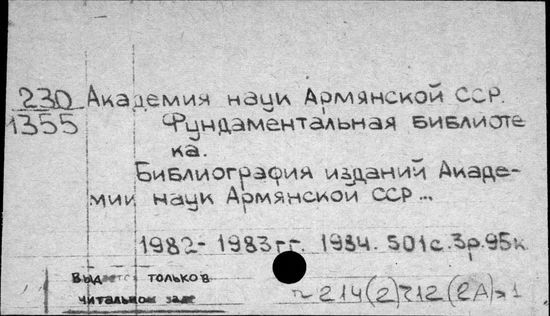 230 Академия наук Армянской ССР.
1355 Фундаментальная библиоте
ка.
Библиография изданий Акаде-
мии наук Армянской ССР...
1982-1983гг. 1984. 501с. 3р.95к
Выдается только в
читальном зале
214(2)212(2А)я1